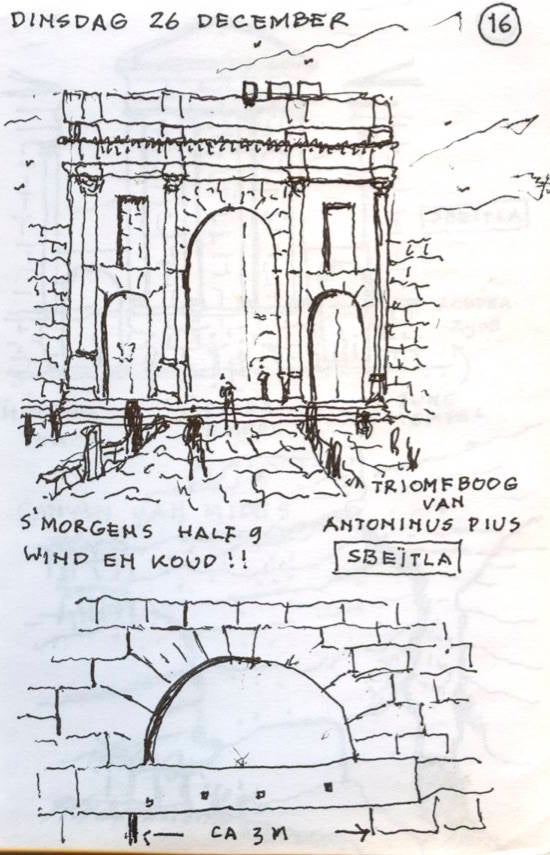 DINSDAG 26 DECEMBER
16
TRIOMFBOOG
VAN
ANTONINUS PIUS
SBEÏTLA
S'MORGENS HALF 9
WIND EN KOUD!!
CA 3 M